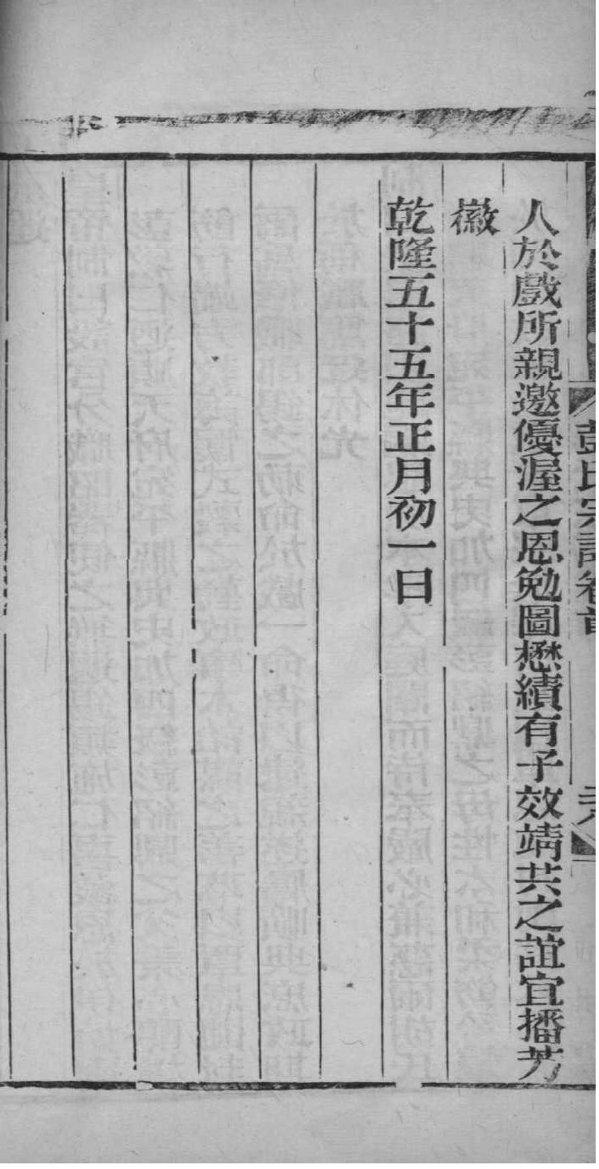 彭氏宗譜卷首
人於戲所親邀優渥之恩勉圖懋績有子效靖共之誼宜播芳
徽
乾隆五十五年正月初一日